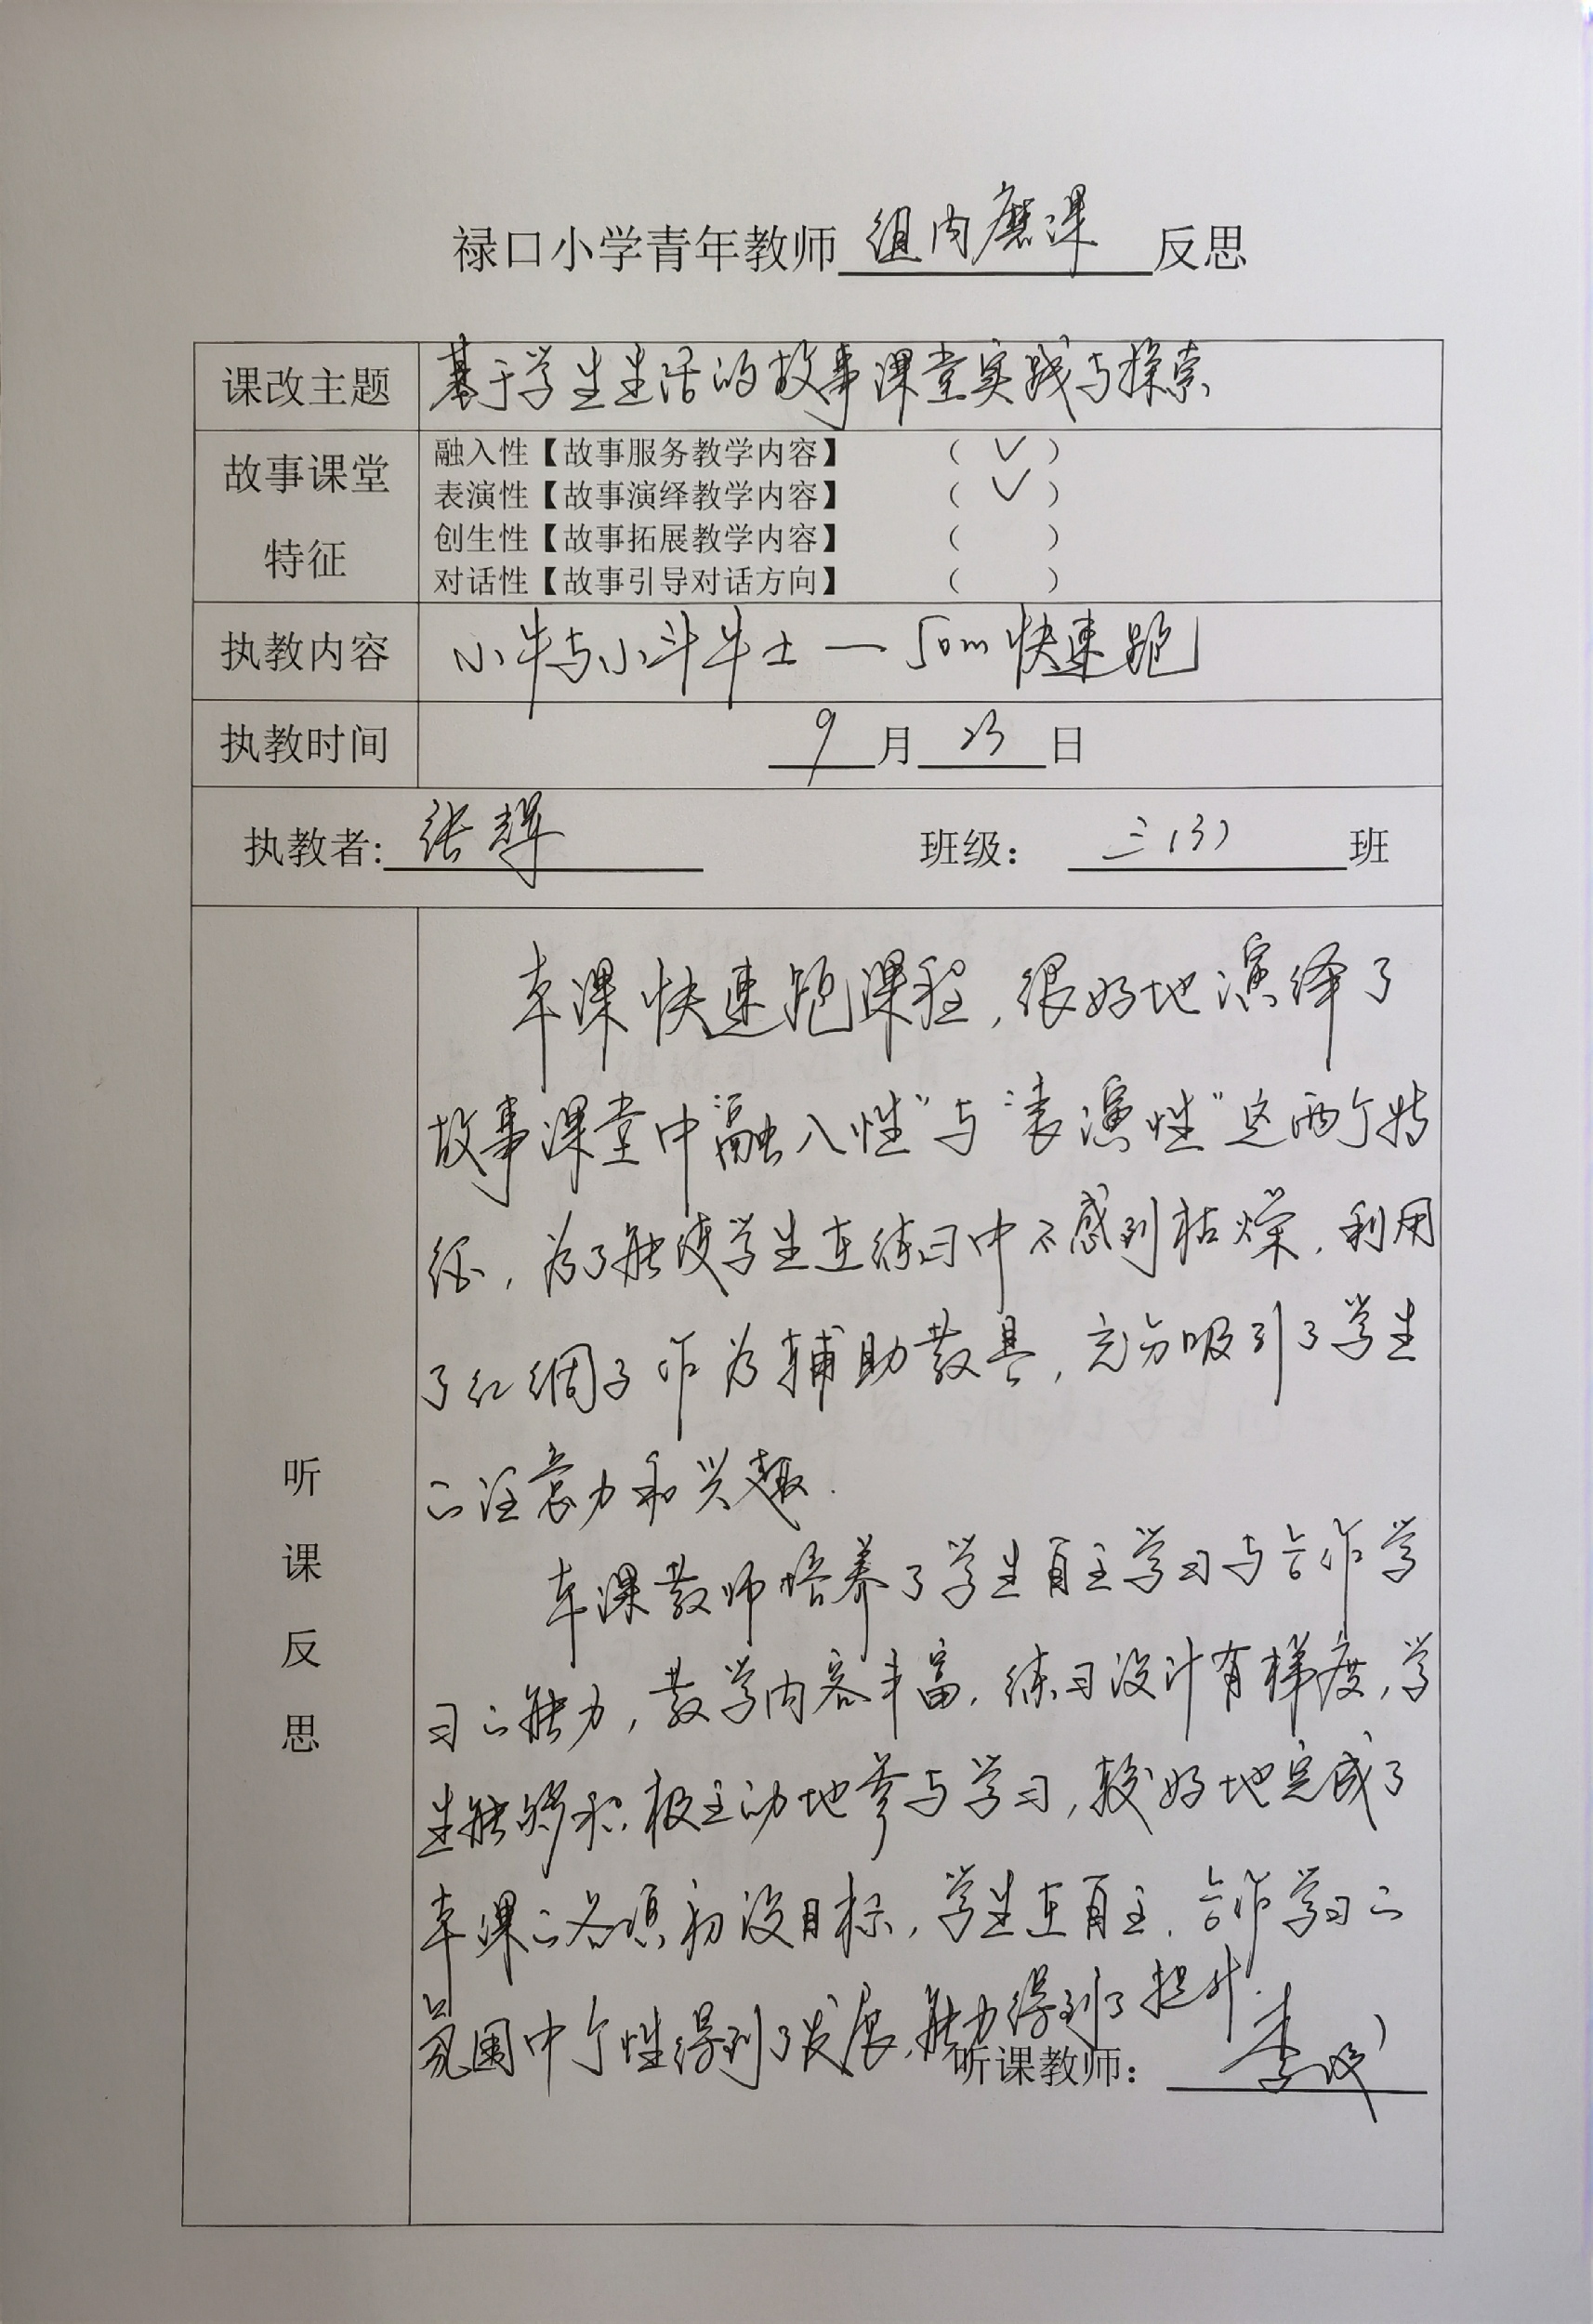 禄口小学青年教师 组内磨课 反思
课改主题 基于学生生活的故事课堂实践与探索
故事课堂
特征
融入性【故事服务教学内容】 ( ✓ )
表演性【故事演绎教学内容】 ( ✓ )
创生性【故事拓展教学内容】 ( )
对话性【故事引导对话方向】 ( )
执教内容 小牛与小斗牛士—50m快速跑
执教时间 9 月 23 日
执教者: 张辉 班级: 三(3) 班
听
课
反
思
本课快速跑课程,很好地演绎了
故事课堂中“融入性”与“表演性”这两个特
征,为了能使学生在练习中不感到枯燥,利用
了红绸子作为辅助教具,充分吸引了学生
的注意力和兴趣.
本课教师培养了学生自主学习与合作学
习的能力,教学内容丰富,练习设计有梯度,学
生能够积极主动地参与学习,较好地完成了
本课的各项初设目标,学生在自主、合作学习的
氛围中个性得到了发展,能力得到了提升.
听课教师: 李